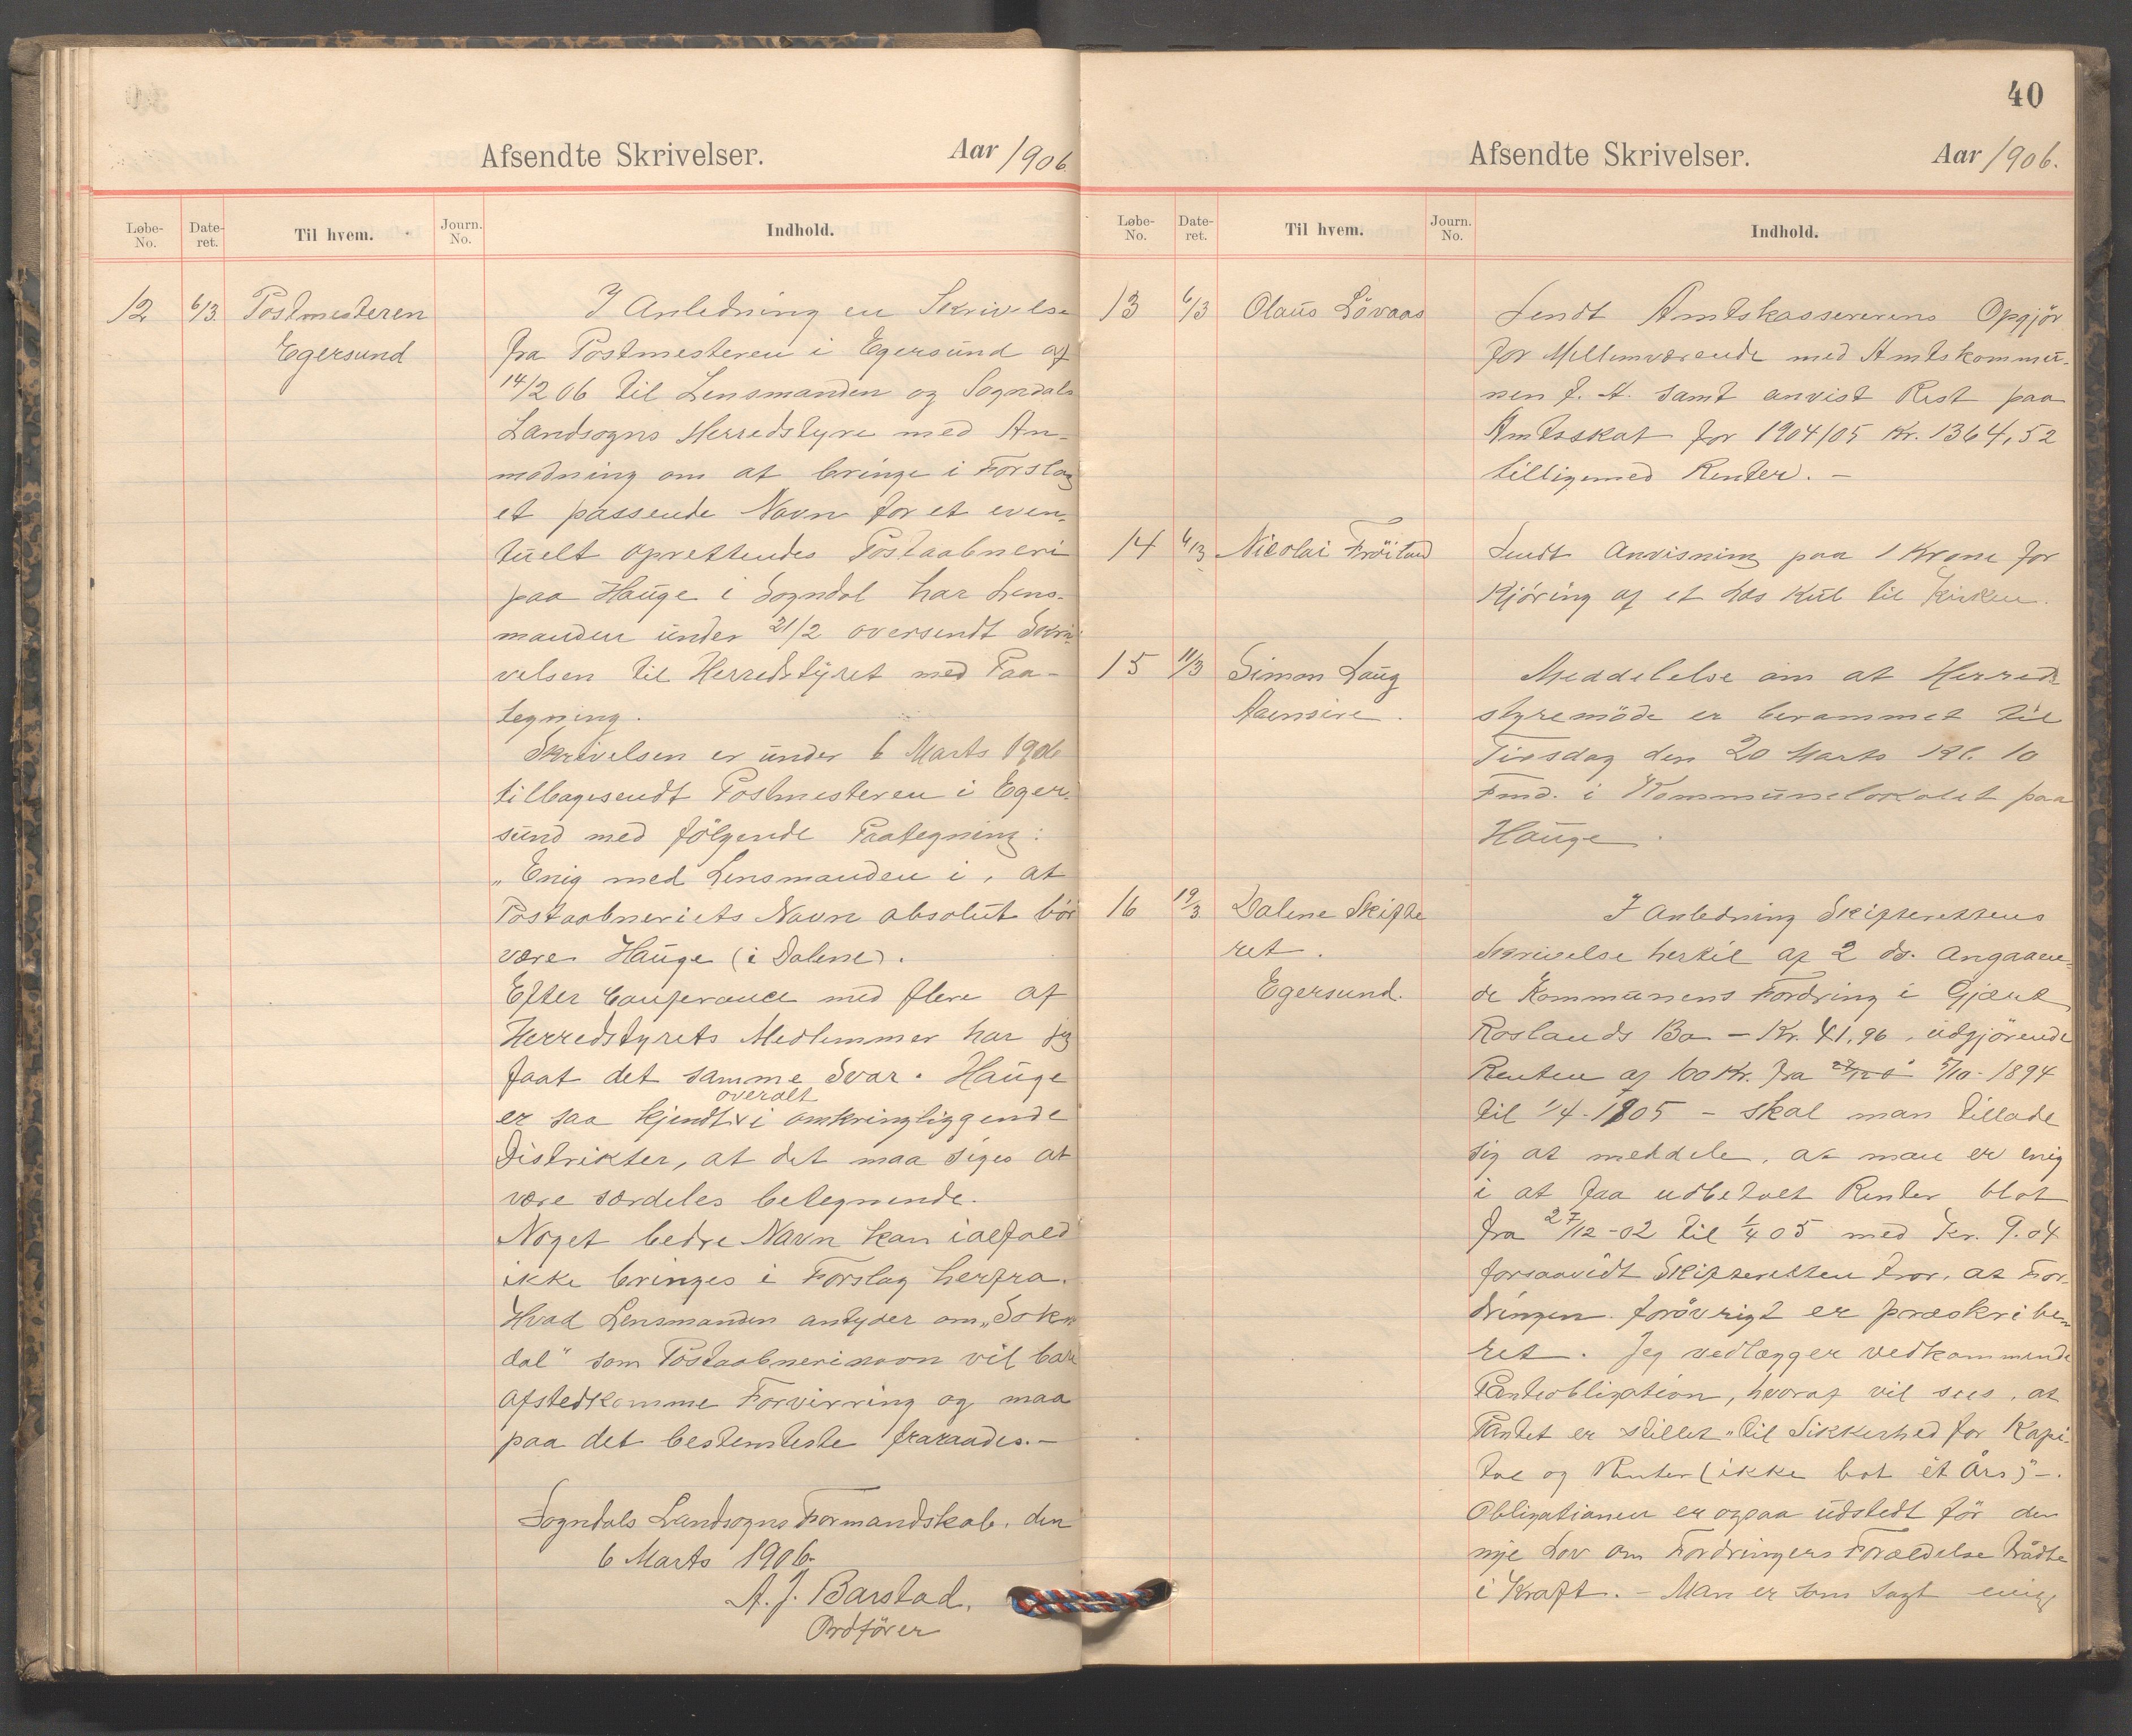 Afsendte Skrivelser. Aar 1906
Løbe-No. Dateret. Til hvem. Journ. No. Indhold.
12 6/3 Postmesteren
Egersund
I Anledning en Skrivelse
fra Postmesteren i Egersund af
14/2 06 til Lensmanden og Sogndals
Landsogns Herredstyre med An-
modning om at bringe i Forslag
et passende Navn for et even-
tuelt oprettendes Postaabneri
paa Hauge i Sogndal har Lens-
manden under 21/2 oversendt Skri-
velsen til Herredstyret med Paa-
tegning.
Skrivelsen er under 6 Marts 1906
tilbagesendt Postmesteren i Eger-
sund med følgende Paategning:
„Enig med Lensmanden i, at
Postaabneriets Navn absolut bör
være Hauge (i Dalene).
Efter Conferance med flere af
Herredstyrets Medlemmer har jeg
faat det samme Svar. Hauge
overalt
er saa kjendt i omkringliggende
Distrikter, at det maa siges at
være særdeles betegnende.
Noget bedre Navn kan ialfald
ikke bringes i Forslag herfra.
Hvad Lensmanden antyder om „Sokn-
dal" som Postaabnerinavn vil bare
afstedkomme Forvirring og maa
paa det bestemteste fraraades.-
Sogndals Landsogns Formandskab, den
6 Marts 1906.
A. J. Barstad.
Ordförer
40
Afsendte Skrivelser. Aar 1906.
Løbe-No. Dateret. Til hvem. Journ. No. Indhold.
13 6/3 Olaus Lövaas
Sendt Amtskassererens Opgjör
for Mellemværende med Amtskommu-
nen f. A. samt anvist Rest paa
Amtsskat for 1904/05 Kr. 1364,52
tilligemed Renter. -
14 6/3 Nicolai Fröitland
Sendt Anvisning paa 1 Krone for
Kjöring af et Læs Kul til Kirken.
15 11/3 Simon Laug
Aaensire.
Meddelelse om at Herreds
styremöde er berammet til
Tirsdag den 20 Marts Kl. 10
Fmd. i Kommunelokalet paa
Hauge.
16 19/3 Dalene Skifte
ret.
Egersund.
I Anledning Skifterettens
Skrivelse hertil af 2 ds. angaaen-
de Kommunens Fordring i
Roslands Bo - Kr. 41,96, udgjörende
Renten af 100 Kr. fra 5/10-1894
til 1/4-1905 - skal man tillade
sig at meddele, at man er enig
i at faa udbetalt Renter blot
fra 27/12-02 til 1/4 05 med Kr. 9.04
forsaavidt Skifteretten tror, at For-
dringen forövrigt er præskribe-
ret. Jeg vedlægger vedkommende
Panteobligation, hvoraf vil sees, at
Pantet er stillet „til Sikkerhed for Kapi-
tal og Renter (ikke bot ét Års)"-.
Obligationen er ogsaa udstedt för den
nye Lov om Fordringers Forældelse trådte
i Kraft. - Man er som sagt enig